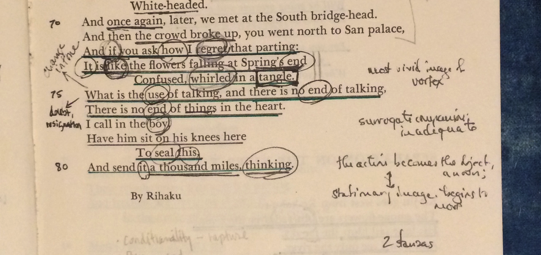 White-headed.
70 And once again, later, we met at the South bridge-head.
And then the crowd broke up, you went north to San palace,
And if you ask how I regret that parting:
It is like the flowers falling at Spring's end
Confused, whirled in a tangle.
75 What is the use of talking, and there is no end of talking,
There is no end of things in the heart.
I call in the boy,
Have him sit on his knees here
To seal this,
80 And send it a thousand miles, thinking.
By Rihaku
change
most vivid image of
vortex
resignation
surrogate
inadequate
the active becomes the object,
stationary image, begins to
move
2 stanzas
conditionality - rupture